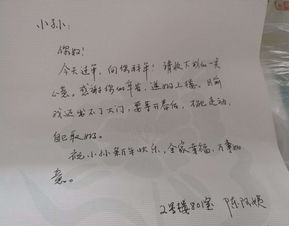 小孙:
你好!
今天过年,向你拜年!请收下我的一点
心意。感谢你的辛苦,送奶上楼。目前
我还出不了大门,要等开春后,才能走动,
自己取奶。
祝小孙新年快乐,全家幸福,万事如
意。
2号楼801室 陈